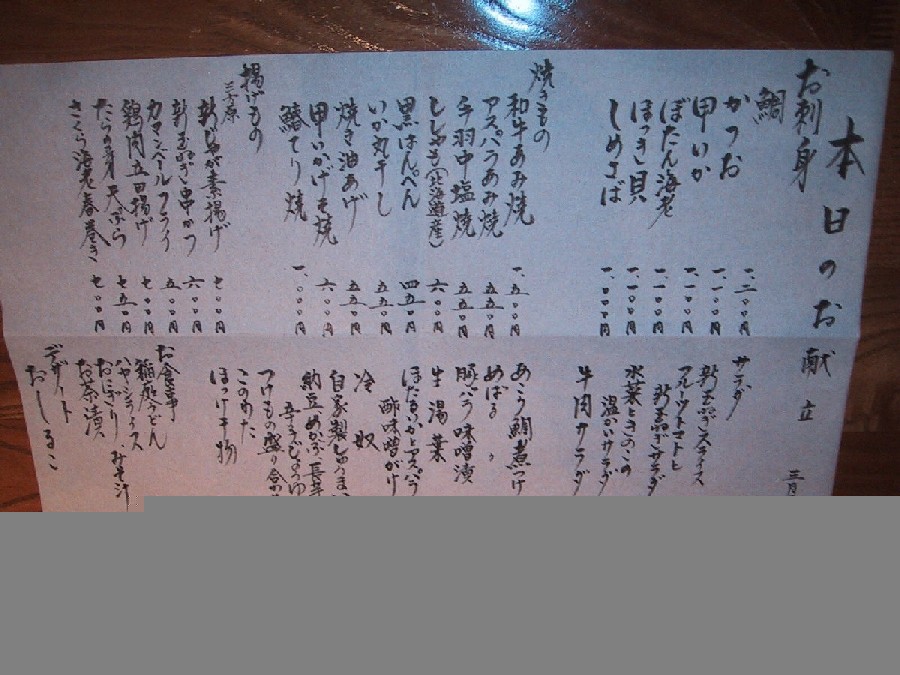 本日のお献立 三月
お刺身
鯛 一、二〇〇円
かつお 一、一〇〇円
甲いか 一、一〇〇円
ぼたん海老 一、一〇〇円
ほっき貝 一、一〇〇円
しめさば 一、〇〇〇円
焼きもの
和牛あみ焼 一、五〇〇円
アスパラあみ焼 五五〇円
手羽中塩焼 五五〇円
ししゃも(北海道産) 六〇〇円
黒はんぺん 四五〇円
いか丸干し 五五〇円
焼き油あげ 五五〇円
甲いかげそ焼 六〇〇円
鰆てり焼 一、〇〇〇円
揚げもの
三方原
新じゃが素揚げ 七〇〇円
新玉ねぎ串かつ 六〇〇円
カマンベールフライ 五〇〇円
鶏肉立田揚げ 七〇〇円
たらの芽天ぷら 七五〇円
さくら海老春巻き 七〇〇円
サラダ
新玉ねぎスライス
フルーツトマトと
新玉ねぎサラダ
水菜ときのこの
温かいサラダ
牛肉サラダ
あこう鯛煮つけ
めばる 〃
豚バラ味噌漬
生湯葉
ほたるいかとアスパラ
酢味噌がけ
冷奴
自家製しゅうまい
納豆めかぶ長芋
つけもの盛り合わ
このわた
ほっけ干物
お食事
稲庭うどん
ハヤシライス
おにぎり、みそ汁
お茶漬
デザート
おしるこ